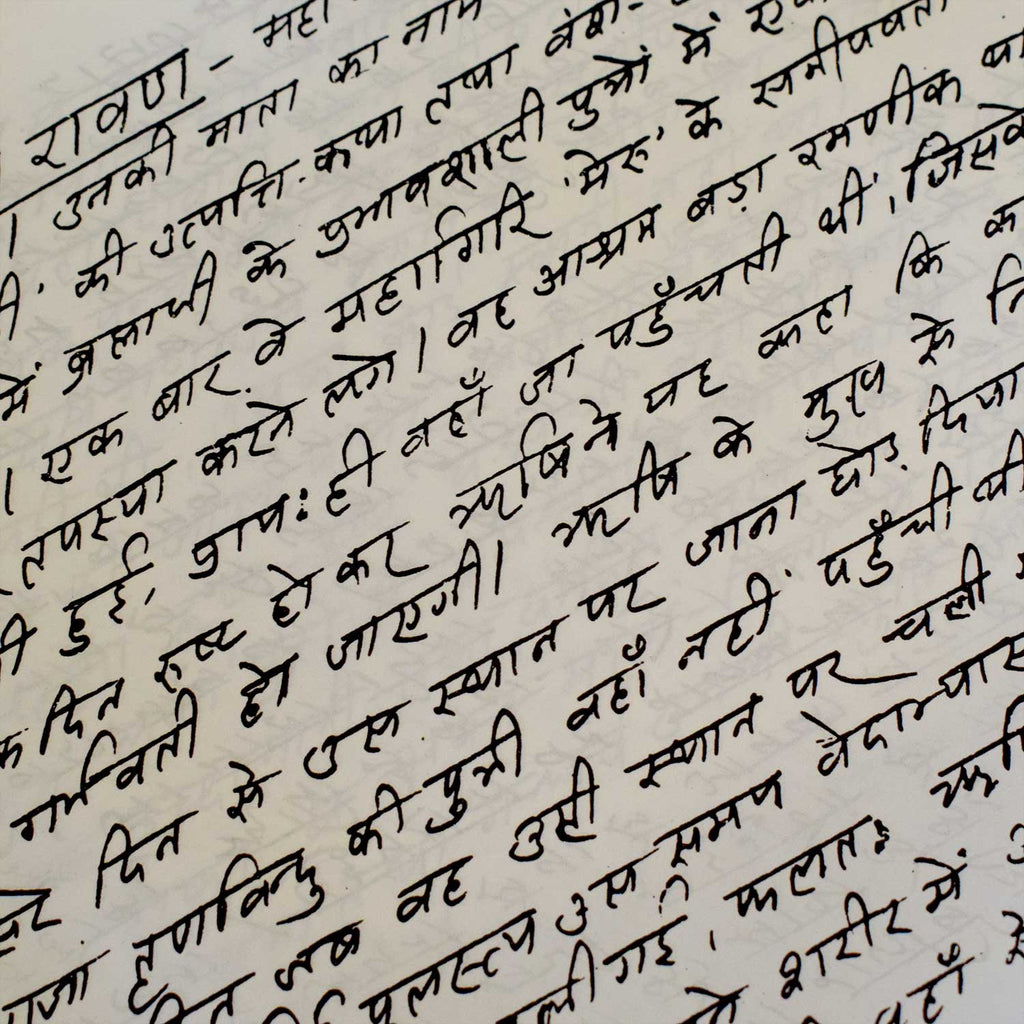 रावण - महा
। उनकी माता का नाम
की उत्पत्ति-कथा तथा वंश-
में ब्रह्माजी के प्रभावशाली पुत्रों में
। एक बार वे महागिरि 'मेरु' के समीपवर्ती
तपस्या करने लगे। वह आश्रम बड़ा रमणीक था
हुई, प्रायः ही वहाँ जा पहुँचती थीं, जिसके
दिन रुष्ट हो कर ऋषि ने यह कहा कि
गर्भवती हो जाएगी। ऋषि के मुख से
दिन से उस स्थान पर जाना छोड़ दिया
तृणविन्दु की पुत्री वहाँ नहीं पहुँची थी
जब वह उसी स्थान पर चली
पुलस्त्य उस समय वेदाभ्यास
गई, फलतः ऋषि
शरीर में
वहाँ से